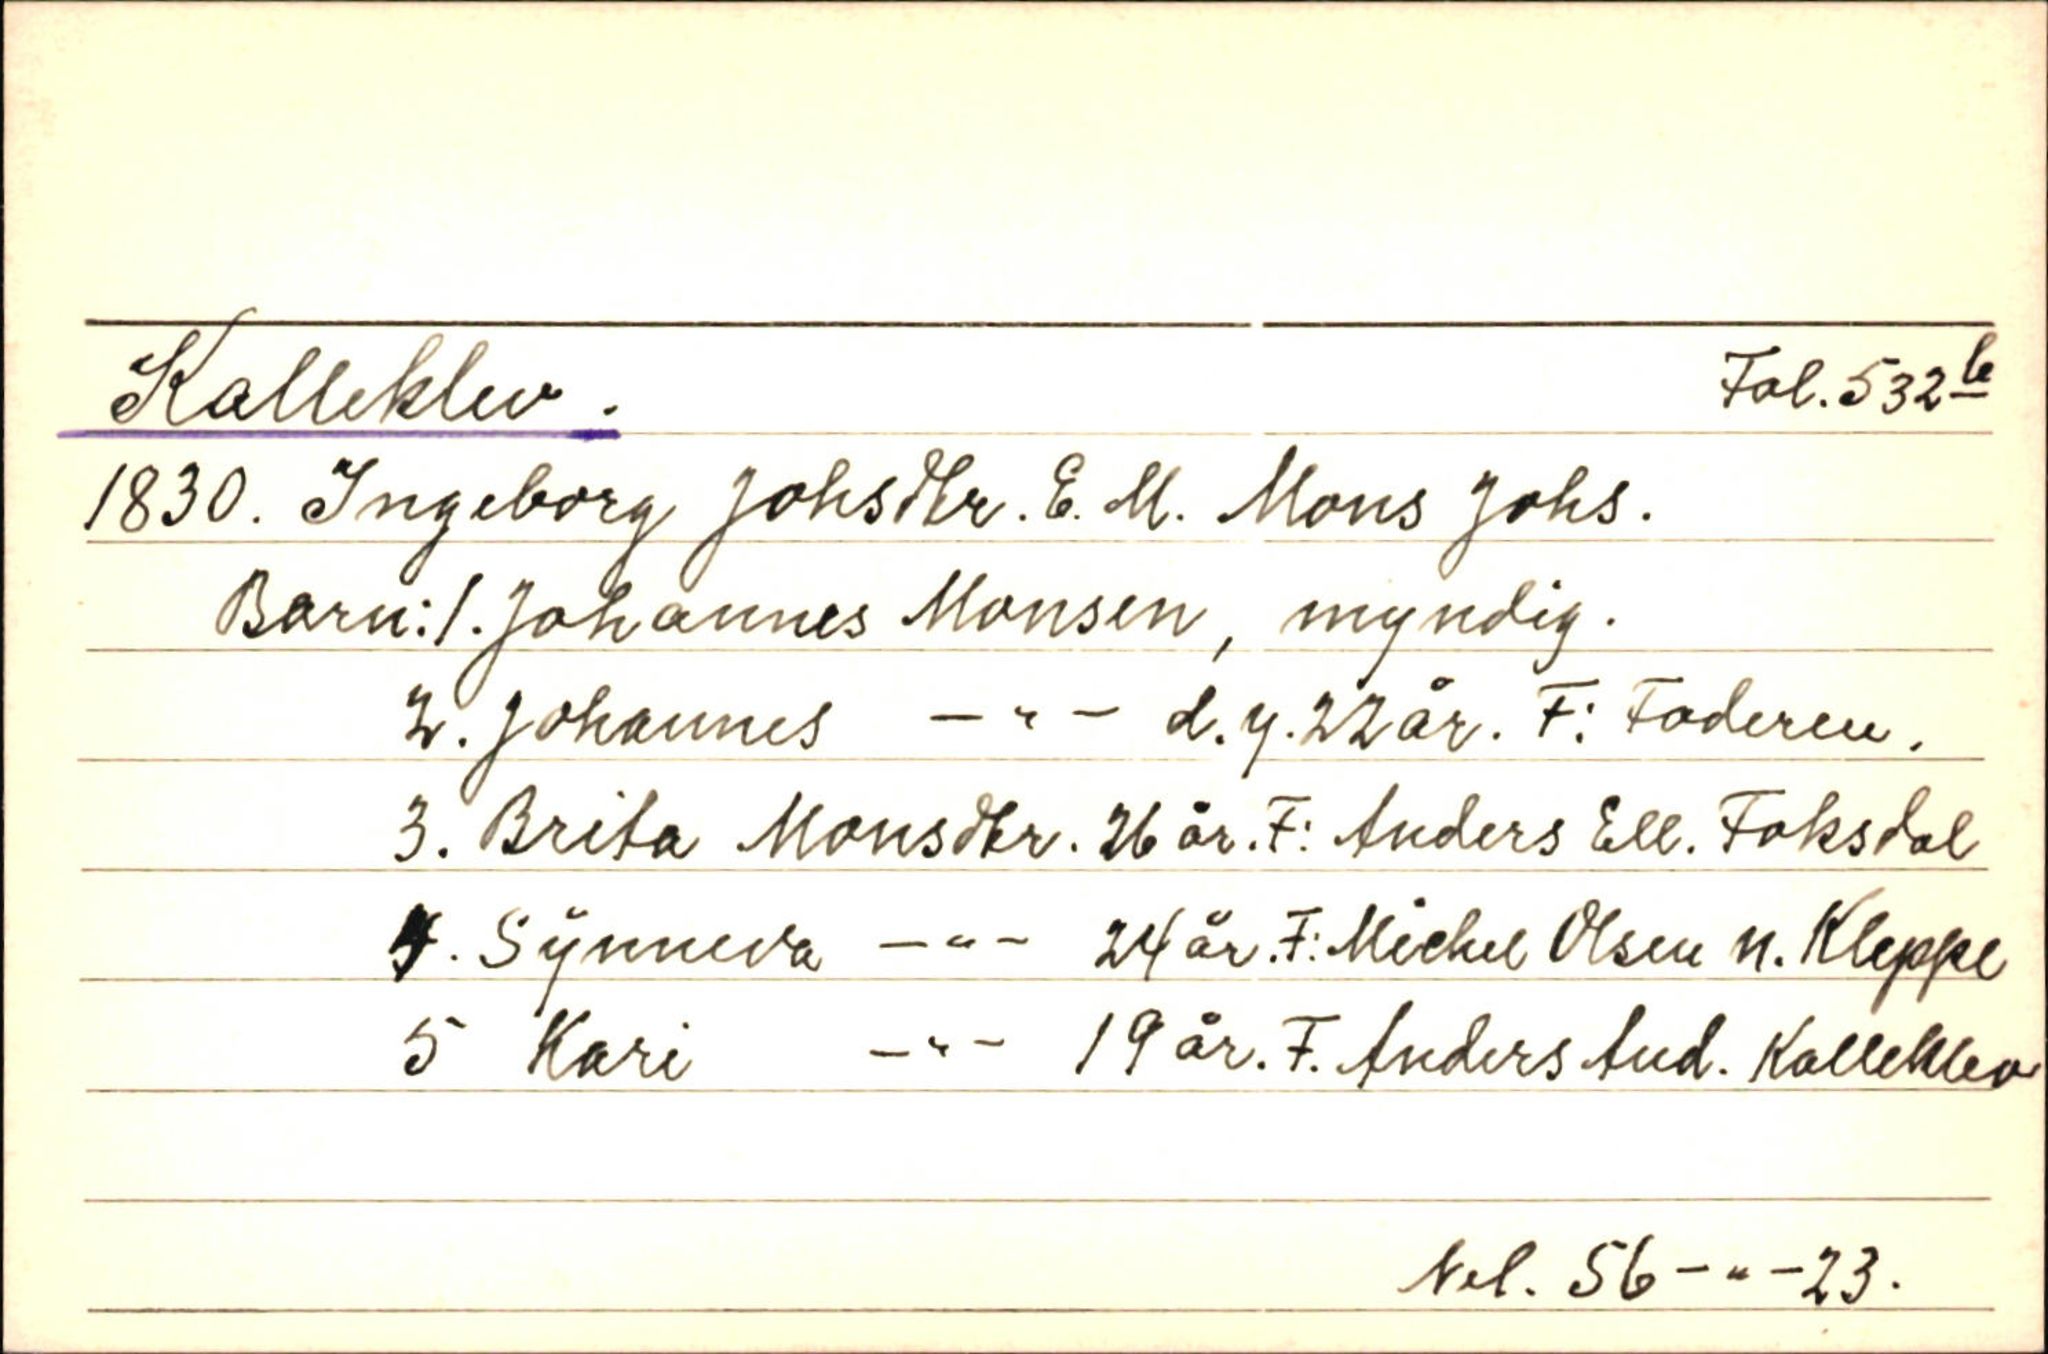 Kalleklev. Fol. 532b
1830. Ingeborg Johsdtr. E. M. Mons Johs.
Barn: 1. Johannes Monsen, myndig.
2. Johannes -"- d. y. 22 år. F: Faderen.
3. Brita Monsdtr. 26 år. F: Anders Ell. Foksdal
4. Synneva -"- 24 år. F: Michel Olsen n. Kleppe
5 Kari -"- 19 år. F. Anders And. Kalleklev
Nel. 56-"-23.